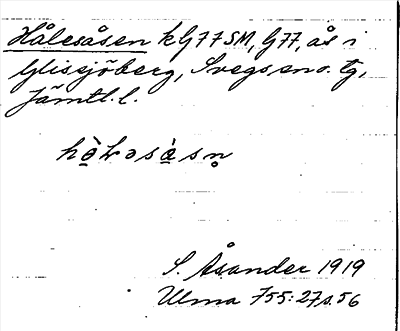 Hålesåsen k G77 SM, G77, ås i
Glissjöberg, Svegs sn o. tg,
Jämtl. l.
hǫ̀ƚəså̀sn̥
S. Åsander 1919
Ulma 755:27 s. 56